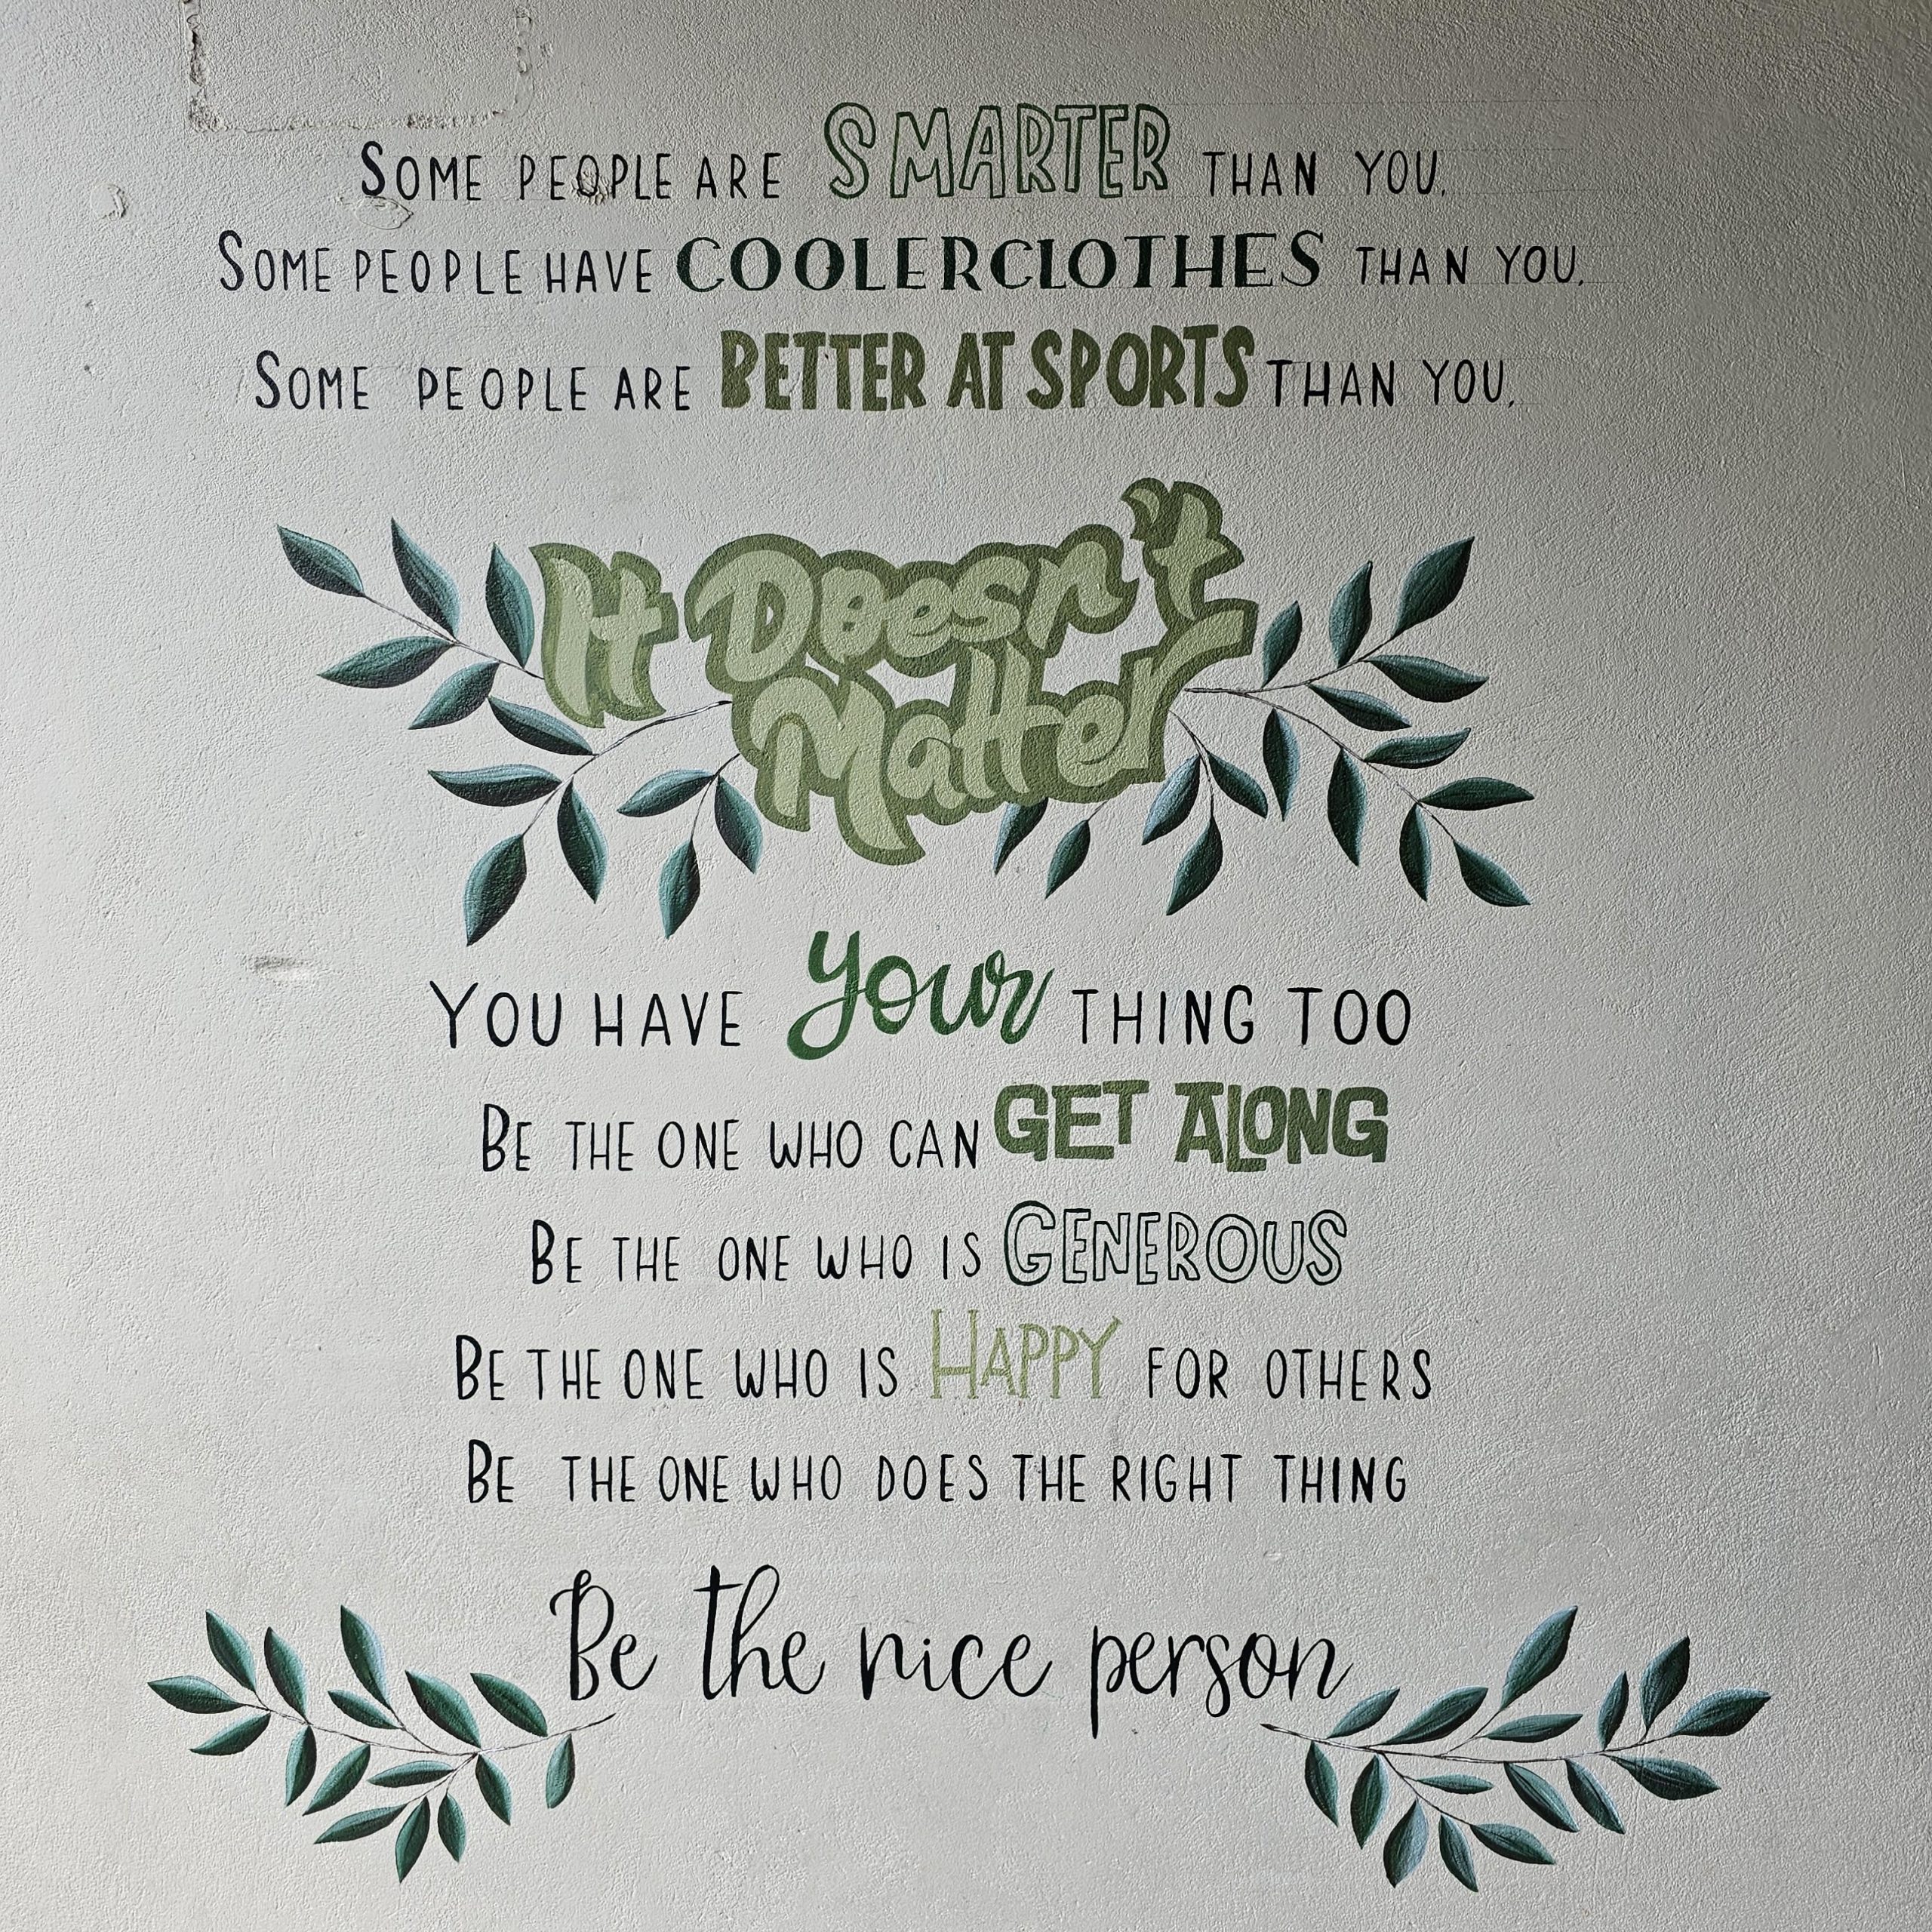 SOME PEOPLE ARE SMARTER THAN YOU.
SOME PEOPLE HAVE COOLER CLOTHES THAN YOU.
SOME PEOPLE ARE BETTER AT SPORTS THAN YOU.
It Doesn't
Matter
YOU HAVE your THING TOO
BE THE ONE WHO CAN GET ALONG
BE THE ONE WHO IS GENEROUS
BE THE ONE WHO IS HAPPY FOR OTHERS
BE THE ONE WHO DOES THE RIGHT THING
Be the nice person